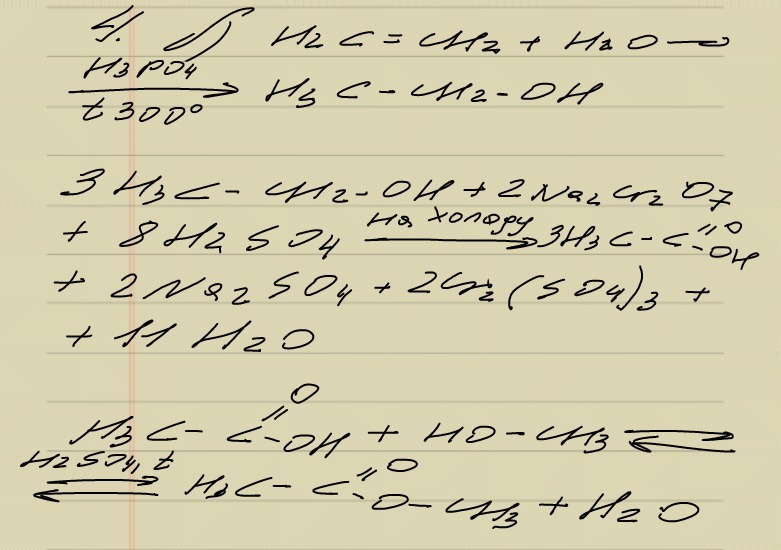 4. а) H2C = CH2 + H2O →
H3PO4 / t 300° → H3C - CH2 - OH
3H3C - CH2 - OH + 2Na2Cr2O7
+ 8H2SO4 на холоду → 3H3C - C(=O)-OH
+ 2Na2SO4 + 2Cr2(SO4)3 +
+ 11H2O
H3C - C(=O)-OH + HO - CH3 ⇄
H2SO4, t ⇄ H3C - C(=O)-O - CH3 + H2O